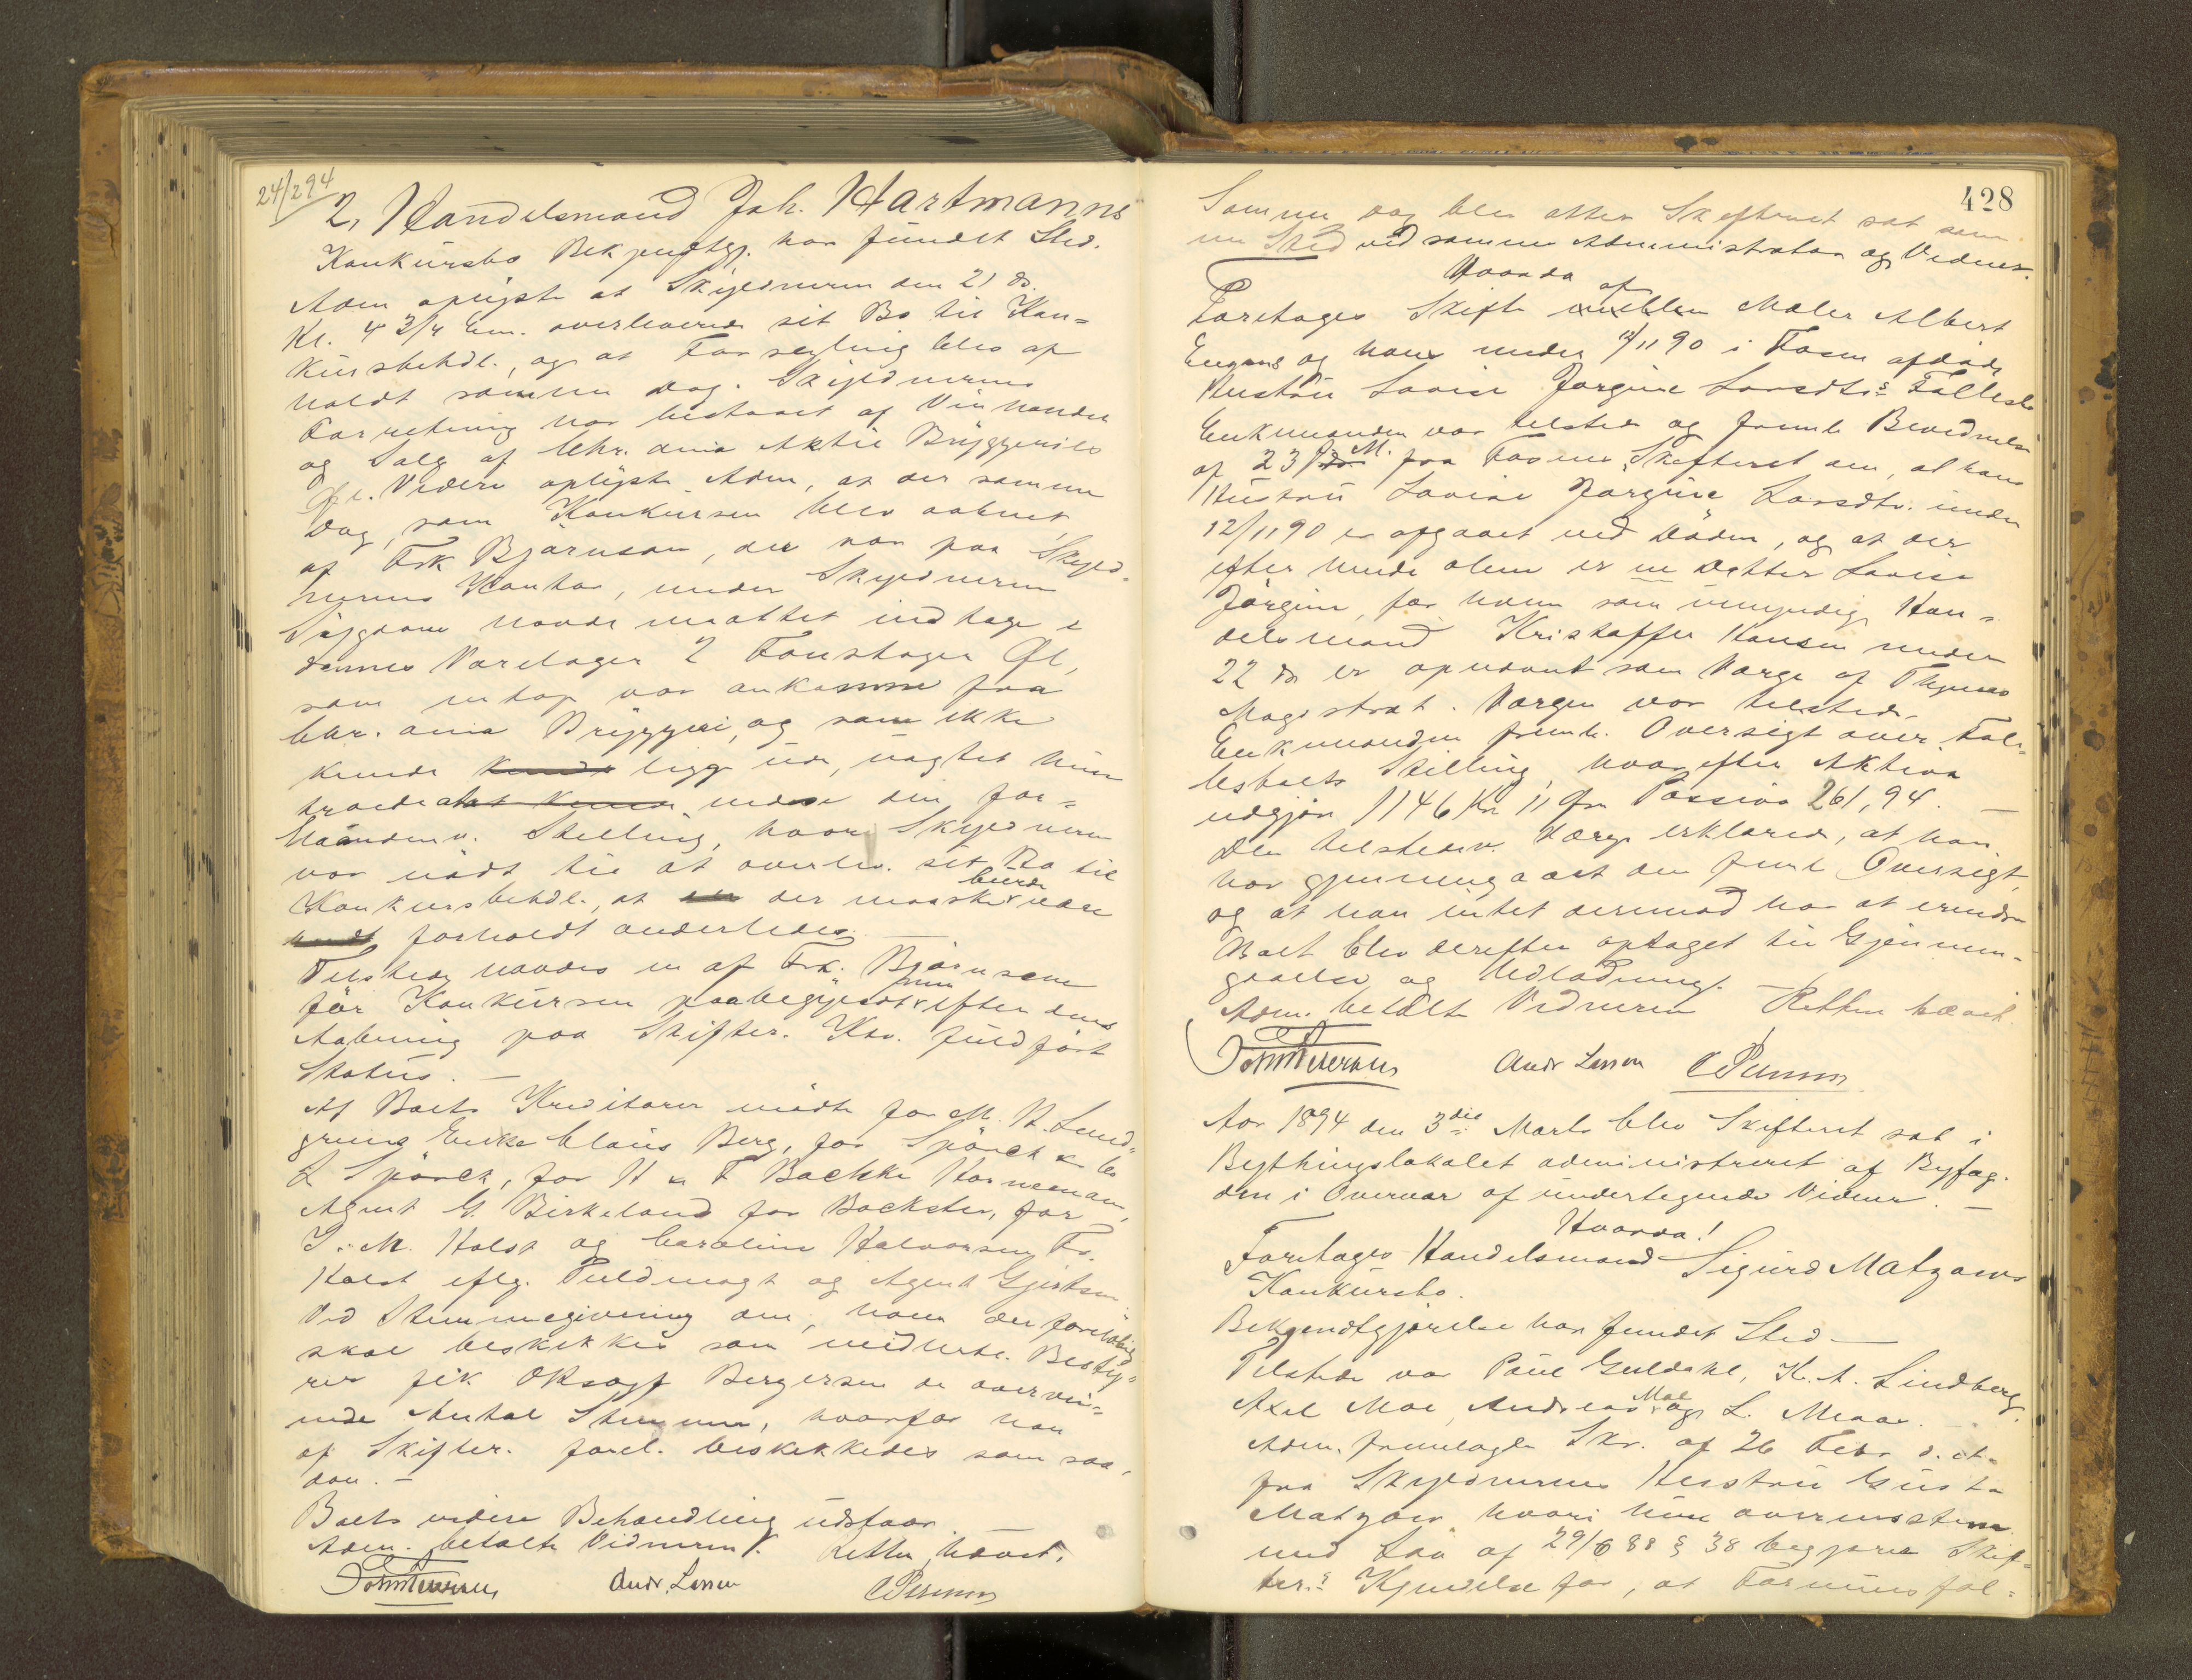 24/2 94
2, Handelsmand Joh. Hartmanns
Konkursbo Bekjendtgj. har fundet Sted.
Adm oplyste at Skyldneren den 21 ds.
Kl. 4 3/4 Em. overleverede sit Bo til Kon=
kursbehdl., og at Forsegling blev af
holdt samme Dag. Skyldnerens
Forretning har bestaaet af Vinhandel
og Salg af Chr.ania Aktie Bryggeries
Øl. Videre oplyste Adm, at der samme
Dag, som Konkursen blev aabnet
af Frk Bjørnson, der var paa Skyld=
nerens Kontor, under Skyldnerens
Sygdom havde maattet indtage i
dennes Varelager 2 Foustager Øl,
som netop var ankomne fra
Chr.ania Bryggeri, og som ikke
kunde kunde ligge ude, uagtet hun
troede at under den for=
haanden v. Stilling, hvor Skyldneren
var nødt til at overlev. sit Bo til
Konkursbehdl., at der maaske burde være
forholdt anderledes. —
Tilstede havdes en af Frk. Bjørnson
før Konkursen paabegyndt men efter dens
Aabning paa Skifter. Ktr. fuldført
Status. —
Af Boets Kreditorer mødte for M. H. Lund=
grens Enke Claus Berg, for Spørck & Co
L Spørck, for H & F Bachke Hornemann,
Agent G. Birkeland for Backster, for
I. M. Holst og Caroline Halvorsen Fr.
Holst eflg. Fuldmagt og Agent Gjertsen
Ved Stemmegivning om, hvem der foreløbig
skal beskikkes som midlert. Besty=
rer fik OKsagf Bergersen de overvei=
ende Antal Stemmer, hvorfor han
af Skifter. forel. beskikkedes som saa=
dan. —
Boets videre Behandling udstaar.
Adm. betalte Vidnerne. Retten hævet.
Andr. Larsen
428
Samme Dag blev atter Skifteret sat sam=
me Sted ved samme Administrator og Vidner.
Hvorda
Foretages Skifte mellem af Maler Albert
Engens og hans under 12/11 90 i Fosen afdøde
Hustru Lovise Jørgine Larsdtr.s Fællesbo
Enkmanden var tilstede og freml. Bevidnelse
af 23 ds. M. fra Fosens Skifteret om, at hans
Hustru Lovise Jørgine Larsdtr. under
12/11 90 er afgaaet ved Døden, og at der
efter hende alene er en Datter Lovise
Jørgine, for hvem som umyndig Han=
delsmand Kristoffer Hansen under
22 ds er opnævnt som Værge af Thjems
Magistrat. Værgen var tilstede.
Enkmanden freml. Oversigt over Fæl=
lesboets Stilling, hvorefter Aktiva
udgjør 1146 Kr 11 Øre Passiva 261,94. —
Den tilstedev. Værge erklærede, at han
har gjennemgaaet den freml Oversigt,
og at han intet derimod har at erindre
Boet blev derefter optaget til Gjennem=
gaaelse og Udlodning. —
Adm. betalte Vidnerne Retten hævet.
Andr Larsen
Aar 1894 den 3die Marts blev Skifteret sat i
Bythingslokalet administreret af Byfog=
den i Overvær af undertegnede Vidner. —
Hvorda!
Foretages Handelsmand Sigurd Matzows
Konkursbo.
Bekjendtgjørelse har fundet Sted —
Tilstede var Paul Guldahl, K. A. Lindberg,
Axel Moe, Andreas Moe og L. Moar.
Adm. fremlagde Skr. af 26 Febr d. A.
fra Skyldnerens Hustru Gusta
Matzow hvori hun overensstem.
med Lov af 29/6 88 § 38 begjærer Skif=
ter.s Kjendelse for, at Formuesfæl=